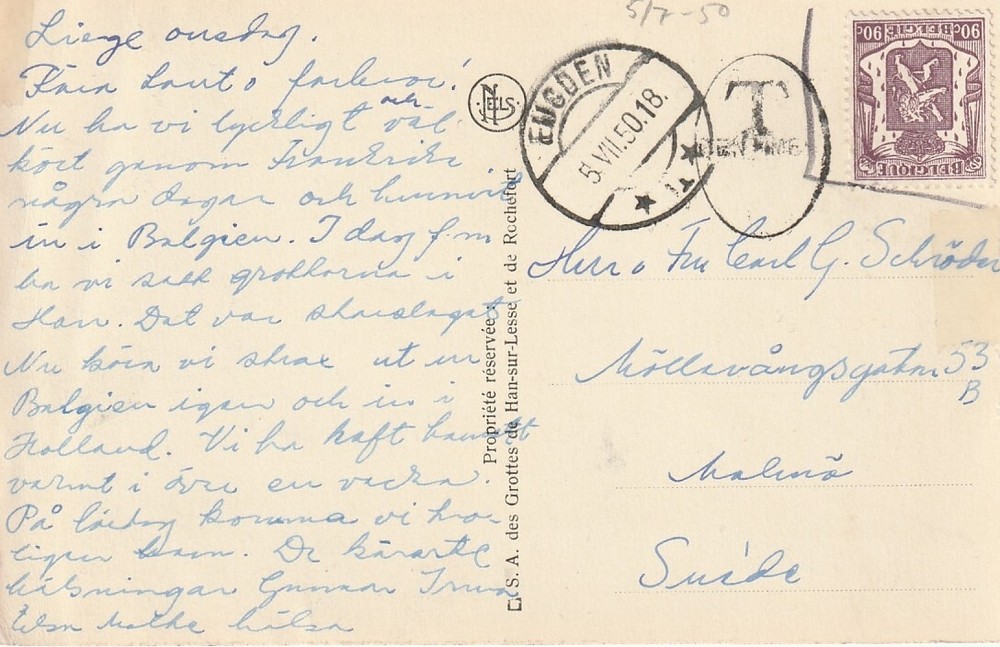 5/7-50
Liege onsdag.
Kära tant o farbror!
Nu ha vi lyckligt och väl
kört genom Frankrike
några dagar och hunnit
in i Belgien. I dag f.m
ha vi sett grottorna i
Han. Det var storslaget
Nu köra vi strax ut ur
Belgien igen och in i
Holland. Vi ha haft
varmt i över en vecka.
På lördag komma vi tro-
ligen hem. De käraste
hälsningar Gunnar
hälsa
NELS
Propriété réservée:
S. A. des Grottes de Han-sur-Lesse et de Rochefort
EUGDEN
5.VII.50.18.
T
90c 90c
BELGIQUE
Herr o Fru Carl G. Schröder
Möllevångsgatan 53
B
Malmö
Suède